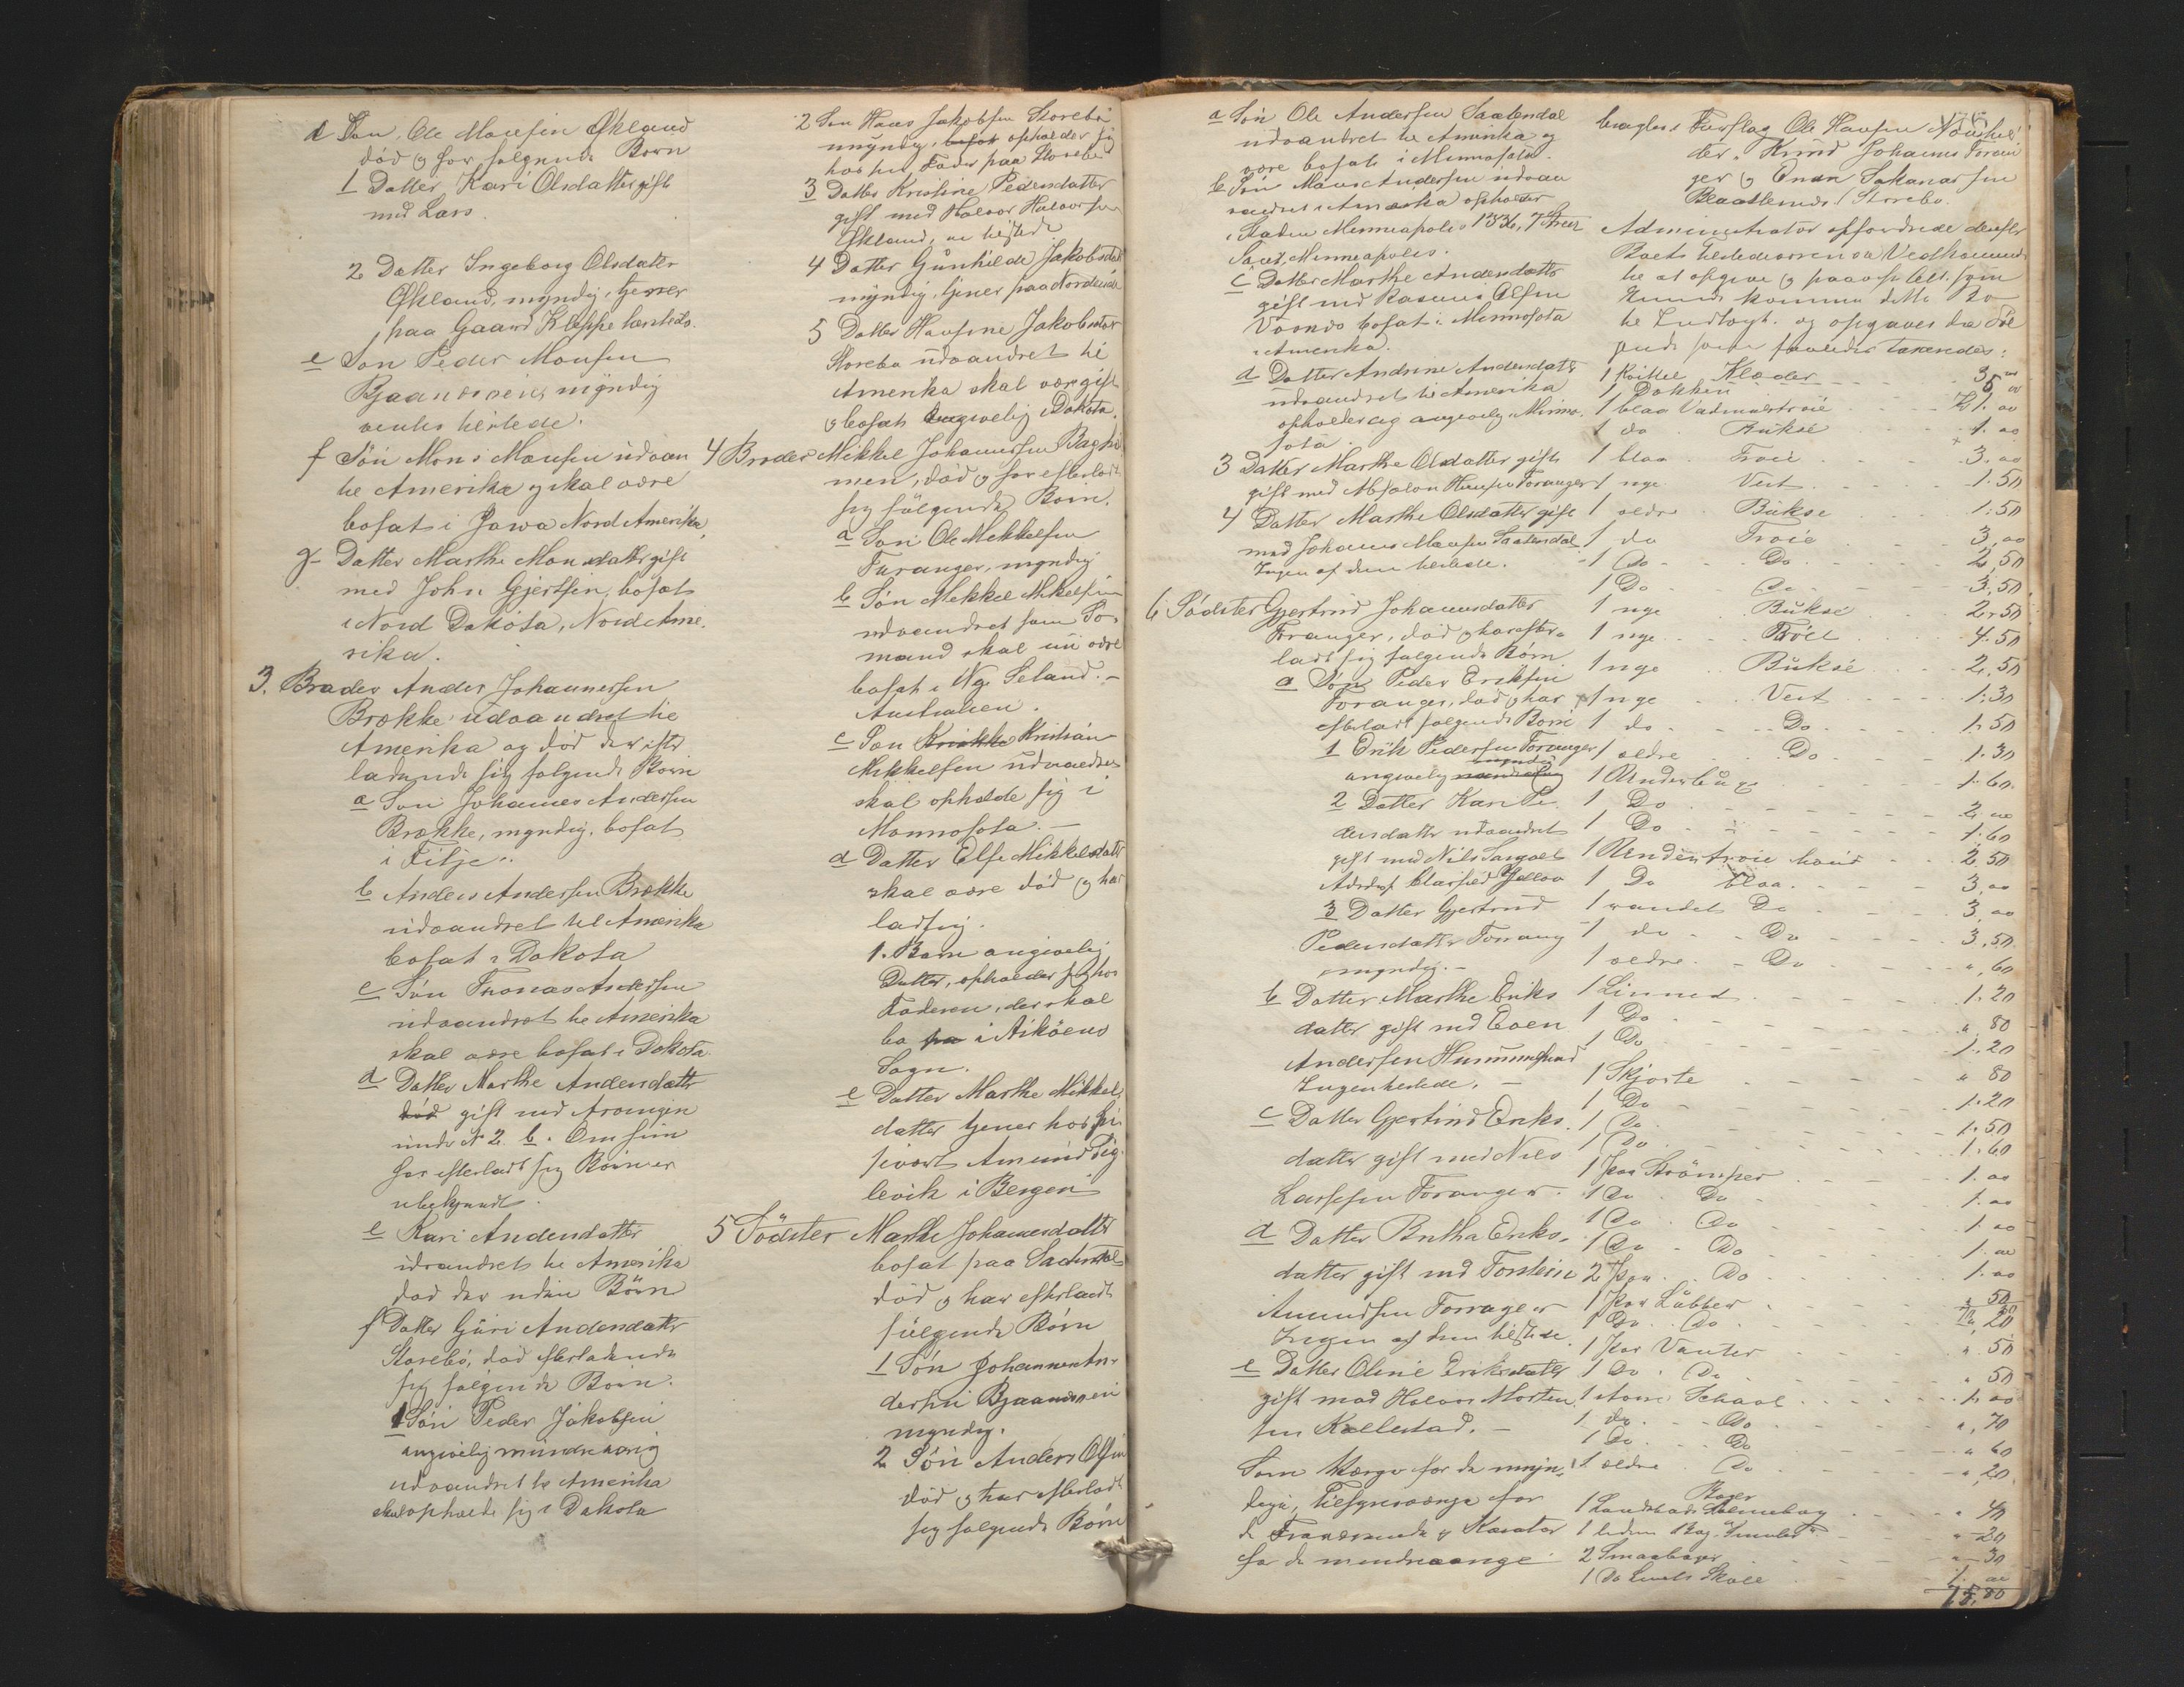 d Søn Ole Monsen Økland
død og har følgende Børn
1 Datter Kari Olsdatter gift
med Lars
2 Datter Ingeborg Olsdatter
Økland, myndig, tjener
paa Gaard Kleppe hersteds.
e Søn Peder Monsen
Bjaanesøien myndig
verks herstede.
f Søn Mons Monsen udvan
til Amerika og skal være
bosat i Jowa Nord Amerika,
g Datter Marthe Monsdatter gift
med John Gjertsen, bosat
i Nord Dakota, Nord Ame.
rika.
3. Broder Anders Johannessen
Brække udvandret til
Amerika og død der efter
ladende sig følgende Børn
a Søn Johannes Andersen
Brække, myndig, bosat
i Filje.
b Anders Andersen Brække
udvandret til Amerika
bosat i Dakota
c Søn Thomas Andersen
udvandret til Amerika
skal være bosat i Dakota.
d Datter Marthe Andersdatter
død gift med Arvingen
under N 2. b. Om hun
har efterladt sig Børn er
ubekjendt.
e Kari Andersdatter
udvandret til Amerika
død der uden Børn
f Datter Guri Andersdatter
Storebø, død efterladende
sig følgende Børn.
1 Søn Peder Jakobsen
angivelig mindreaarig
udvandret til Amerika
skal opholde sig i Dakota
2 Søn Hans Jakobsen Storebø
umyndig, bosat opholder sig
hos sin Fader paa Storebø
3 Datter Kristine Pedersdatter
gift med Halvor Halvorsen
Økland, er histede
4 Datter Gunhilde Jakobsdat
myndig, tjener paa Nordende
5 Datter Hansine Jakobsdatter
Storebø udvandret til
Amerika skal være gift
og bosat angivelig i Dakota.
4 Broder Mikkel Johannessen Bagho
men, død og har efterladt
sig følgende Børn.
a Søn Ole Mikkelsen
Foranger, myndig
b Søn Mikkel Mikkelsen
udvandret som Sø.
mand skal nu være
bosat i Ny Seland. -
Australien.
c Søn Mikkel Kristian
Mikkelsen udvandret
skal opholde sig i
Mennosota. -
d Datter Else Mikkelsdatt
skal være død og har
ladt sig.
1. Barn angivelig
Datter, opholder sig hos
Faderen, der skal
bo paa i Askøens
Sogn.
e Datter Marthe Mikkels
datter tjener hos
Amund
levik i Bergen
5 Sødster Marthe Johannesdatter
bosat paa Saatendal
død og har efterladt
følgende Børn
1 Søn Johannes An-
dersen Bjaanesøen
myndig.
2 Søn Anders Olsen
død og har efterladt
sig følgende Børn
a Søn Ole Andersen Saatendal
udvandret til Amerika og
være bosat i Minnosota.
b Søn Mons Andersen udvan
dret i Amerika opholder
i Staden Minneapolis 1336, 7 Street
Sout, Minneapolis.
c Datter Marthe Andersdatter
gift med Rasmus Olsen
Vorendo bosat i Minnosota
i Amerika.
d Datter Andrine Andersdatter
udvandret til Amerika
opholder sig angivelig i Minno.
sota.
3 Datter Marthe Olsdatter gift
gift med Absalon Hansen Foranger
4 Datter Marthe Olsdatter gift
med Johannes Monsen Saatendal
Ingen af dem herstede.
6 Sødster Gjertrud Johannesdatter
Foranger, død og har efter-
ladt sig følgende Børn
a Søn Peder Eriksen
Foranger, død og har
efterladt følgende Børn
1 Erik Pedersen Foranger
angivelig myndig
2 Datter Kari Pe.
dersdatter udvandret
gift med Nils
3 Datter Gjertrud
Pedersdatter Forang
myndig. -
b Datter Marthe Eriks
datter gift med Even
Andersen
Ingen herstede. -
c Datter Gjertrud Eriks.
datter gift med Nils
Larssen Foranger.
d Datter Britha Eriks-
datter gift med Torstein
Amundsen Foranger
Ingen af dem histede.
e Datter Oline Eriksdatter
gift med Halvor Morten
sen Kallestad. -
Som Værge for de umyn-
dige, Tilsynsværge for
de Fraværende og Kurator
for de mindreaarige
beagtes Forslag Ole Hansen
der, Knud Johannes Foran
ger og Enan Sakariassen
Storebø.
Administrator opfordrede derefter
Boets tilstedeværende Vedkommende
til at opgive og paavise Alt, som
kunde komme dette Bo
til Indtægt. og opgaves da Føl
gende som saaledes taxeredes:
1 Klæder 3 00
1 Dokken 5 00
1 blaa Vadmelstrøie 1. 00
1 do Bukse 1. 00
1 blaa Trøie 3. 00
1 nye Vest 1. 50
1 ældre Bukse 1. 50
1 do Trøie 3, 00
1 Do Do 2, 50
1 Do Do 3, 50
1 nye Bukse 2, 50
1 nye Trøie 4. 50
1 nye Bukse 2, 50
1 nye Vest 1. 30
1 do Do 1. 50
1 ældre Do 1. 30
1 Underbuxe 1. 60.
1 Do 2. 00
1 Do 1. 60
1 Undertrøie hvid 2 50
1 Do blaa 3, 00
1 Do 3, 00
1 do Do 3, 50.
1 ældre Do ", 60
1 Linned 1. 20
1 Do " 80
1 Do 1. 20
1 Skjorte " 80
1 Do 1. 20
1 Do 1. 50
1 Do 1. 60
1 Par Strømper 1. 00
1 Do Do 1. 00
1 Do Do 1. 00
1 Do Do 1. 00
2 Par Do 1. 00
1 Par Labber " 50
1 Do Do 20
1 Par Vanter " 50
1 Do Do " 50
1 Schaal 1. 00
1 do Do ", 70
1 Do Do " 60
1 ældre Do ", 20
1 Landstads Salmebog " 40
1 liden Bog " 20
2 Smaabøger " 30
1 Do 1. 00
75, 80